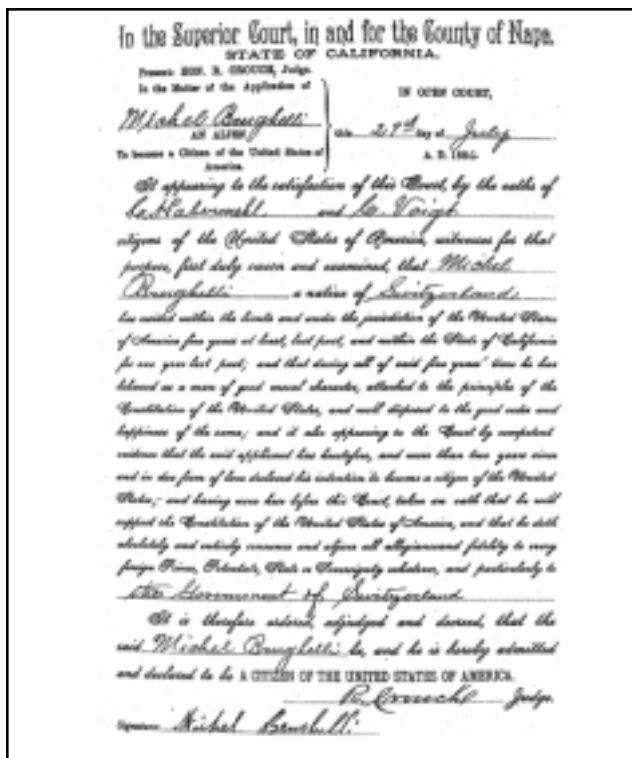 In the Superior Court, in and for the County of Napa,
STATE OF CALIFORNIA.
Present: HON. R. CROUCH, Judge.
In the Matter of the Application of
IN OPEN COURT,
Michel
AN ALIEN
this 29th day of July
To become a Citizen of the United States of
America.
A. D. 188
It appearing to the satisfaction of this Court, by the oaths of
and C. Voigt
citizens of the United States of America, witnesses for that
purpose, first duly sworn and examined, that Michel
a native of Switzerland
has resided within the limits and under the jurisdiction of the United States
of America five years at least, last past, and within the State of California
for one year last past; and that during all of said five years' time he has
behaved as a man of good moral character, attached to the principles of the
Constitution of the United States, and well disposed to the good order and
happiness of the same; and it also appearing to the Court by competent
evidence that the said applicant has heretofore, and more than two years since
and in due form of law declared his intention to become a citizen of the United
States; and having now here before this Court, taken an oath that he will
support the Constitution of the United States of America, and that he doth
absolutely and entirely renounce and abjure all allegiance and fidelity to every
foreign Prince, Potentate, State or Sovereignty whatever, and particularly to
the Government of Switzerland
It is therefore ordered, adjudged and decreed, that the
said Michel be, and he is hereby admitted
and declared to be A CITIZEN OF THE UNITED STATES OF AMERICA.
R. Crouch Judge.
Signature Michel